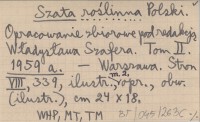 Szata roślinna Polski.
Opracowanie zbiorowe pod redakcją
Władysława Szafera. Tom II.
1959 a. — Warszawa. Stron
VIII, 339, ilustr., m. 2, opr., obw.
(ilustr.), cm 24 x 18,
WHP, MT, TM